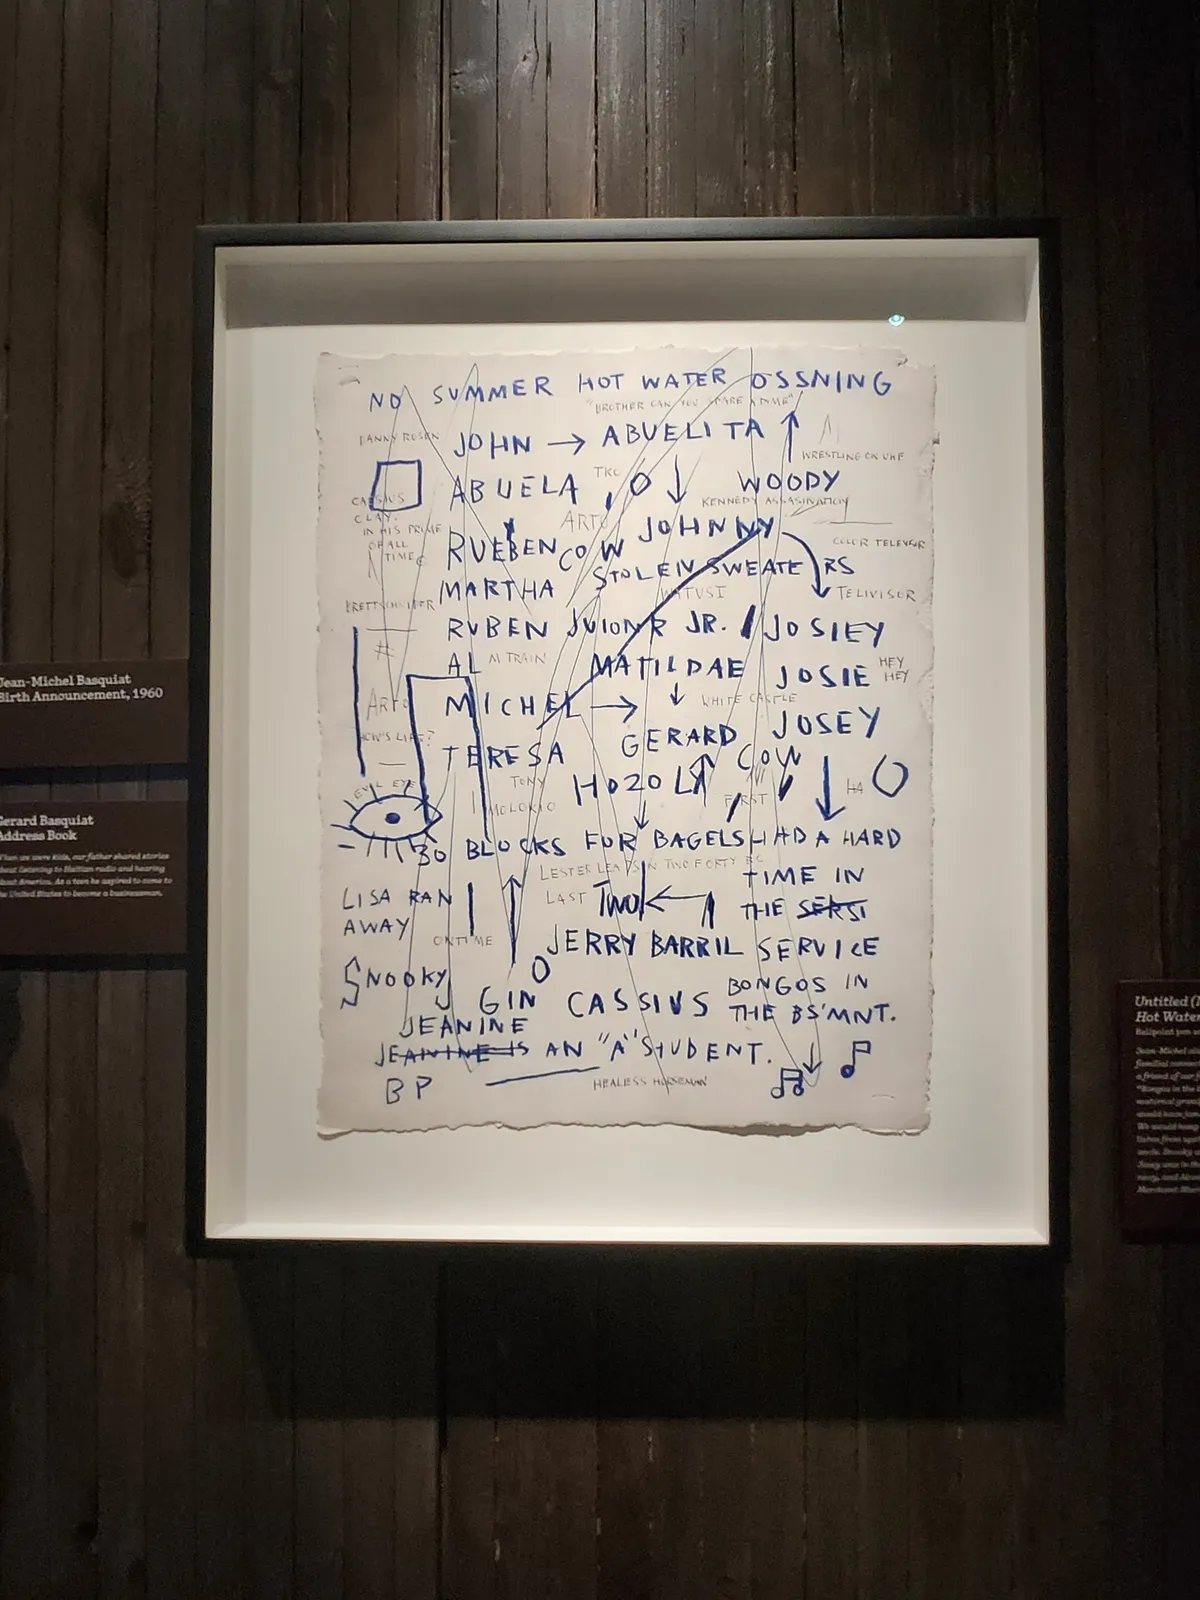 NO SUMMER HOT WATER OSSNING
"BROTHER CAN YOU SPARE A DIME"
DANNY ROSEN
JOHN → ABUELITA
WRESTLING ON UHF
ABUELA
TKO
O
WOODY
KENNEDY ASSASINATION
CASSIUS
CLAY.
IN HIS PRIME
OF ALL
TIME
ARTO
JOHNNY
COLOR
RUEBEN
COW
STOLEN SWEATERS
MARTHA
WATUSI
TELIVISOR
RUBEN JUIONR JR. JOSIEY
#
AL
M TRAIN
MATILDAE
JOSIE
HEY
HEY
ARTO
MICHEL →
WHITE CASTLE
JOSEY
HOW'S LIFE?
TERESA
GERARD
COW
EVIL EYE
TONY
HOZOLY
FIRST
HA
O
MOLOKIO
30 BLOCKS FOR BAGELS HAD A HARD
TIME IN
THE SERSI
SERVICE
LESTER LEAPS IN TWO FORTY
LISA RAN
AWAY
LAST
TWO
ONTIME
JERRY BARRIL
SNOOKY
O
BONGOS IN
THE BS'MNT.
GIN CASSIUS
JEANINE
JEANINE IS AN "A" STUDENT.
BP
HEALESS HORSEMAN
Jean-Michel Basquiat
Birth Announcement, 1960
Gerard Basquiat
Address Book
When we were kids, our father shared stories
about listening to Haitian radio and hearing
about America. As a teen he aspired to come to
the United States to become a businessman.
Untitled
Hot Water
Ballpoint pen
Jean-Michel
familial
a friend of our
"Bongos in the
maternal
would have
We would
listen from
uncle. Snooky
Josey was in the
navy, and
Merchant